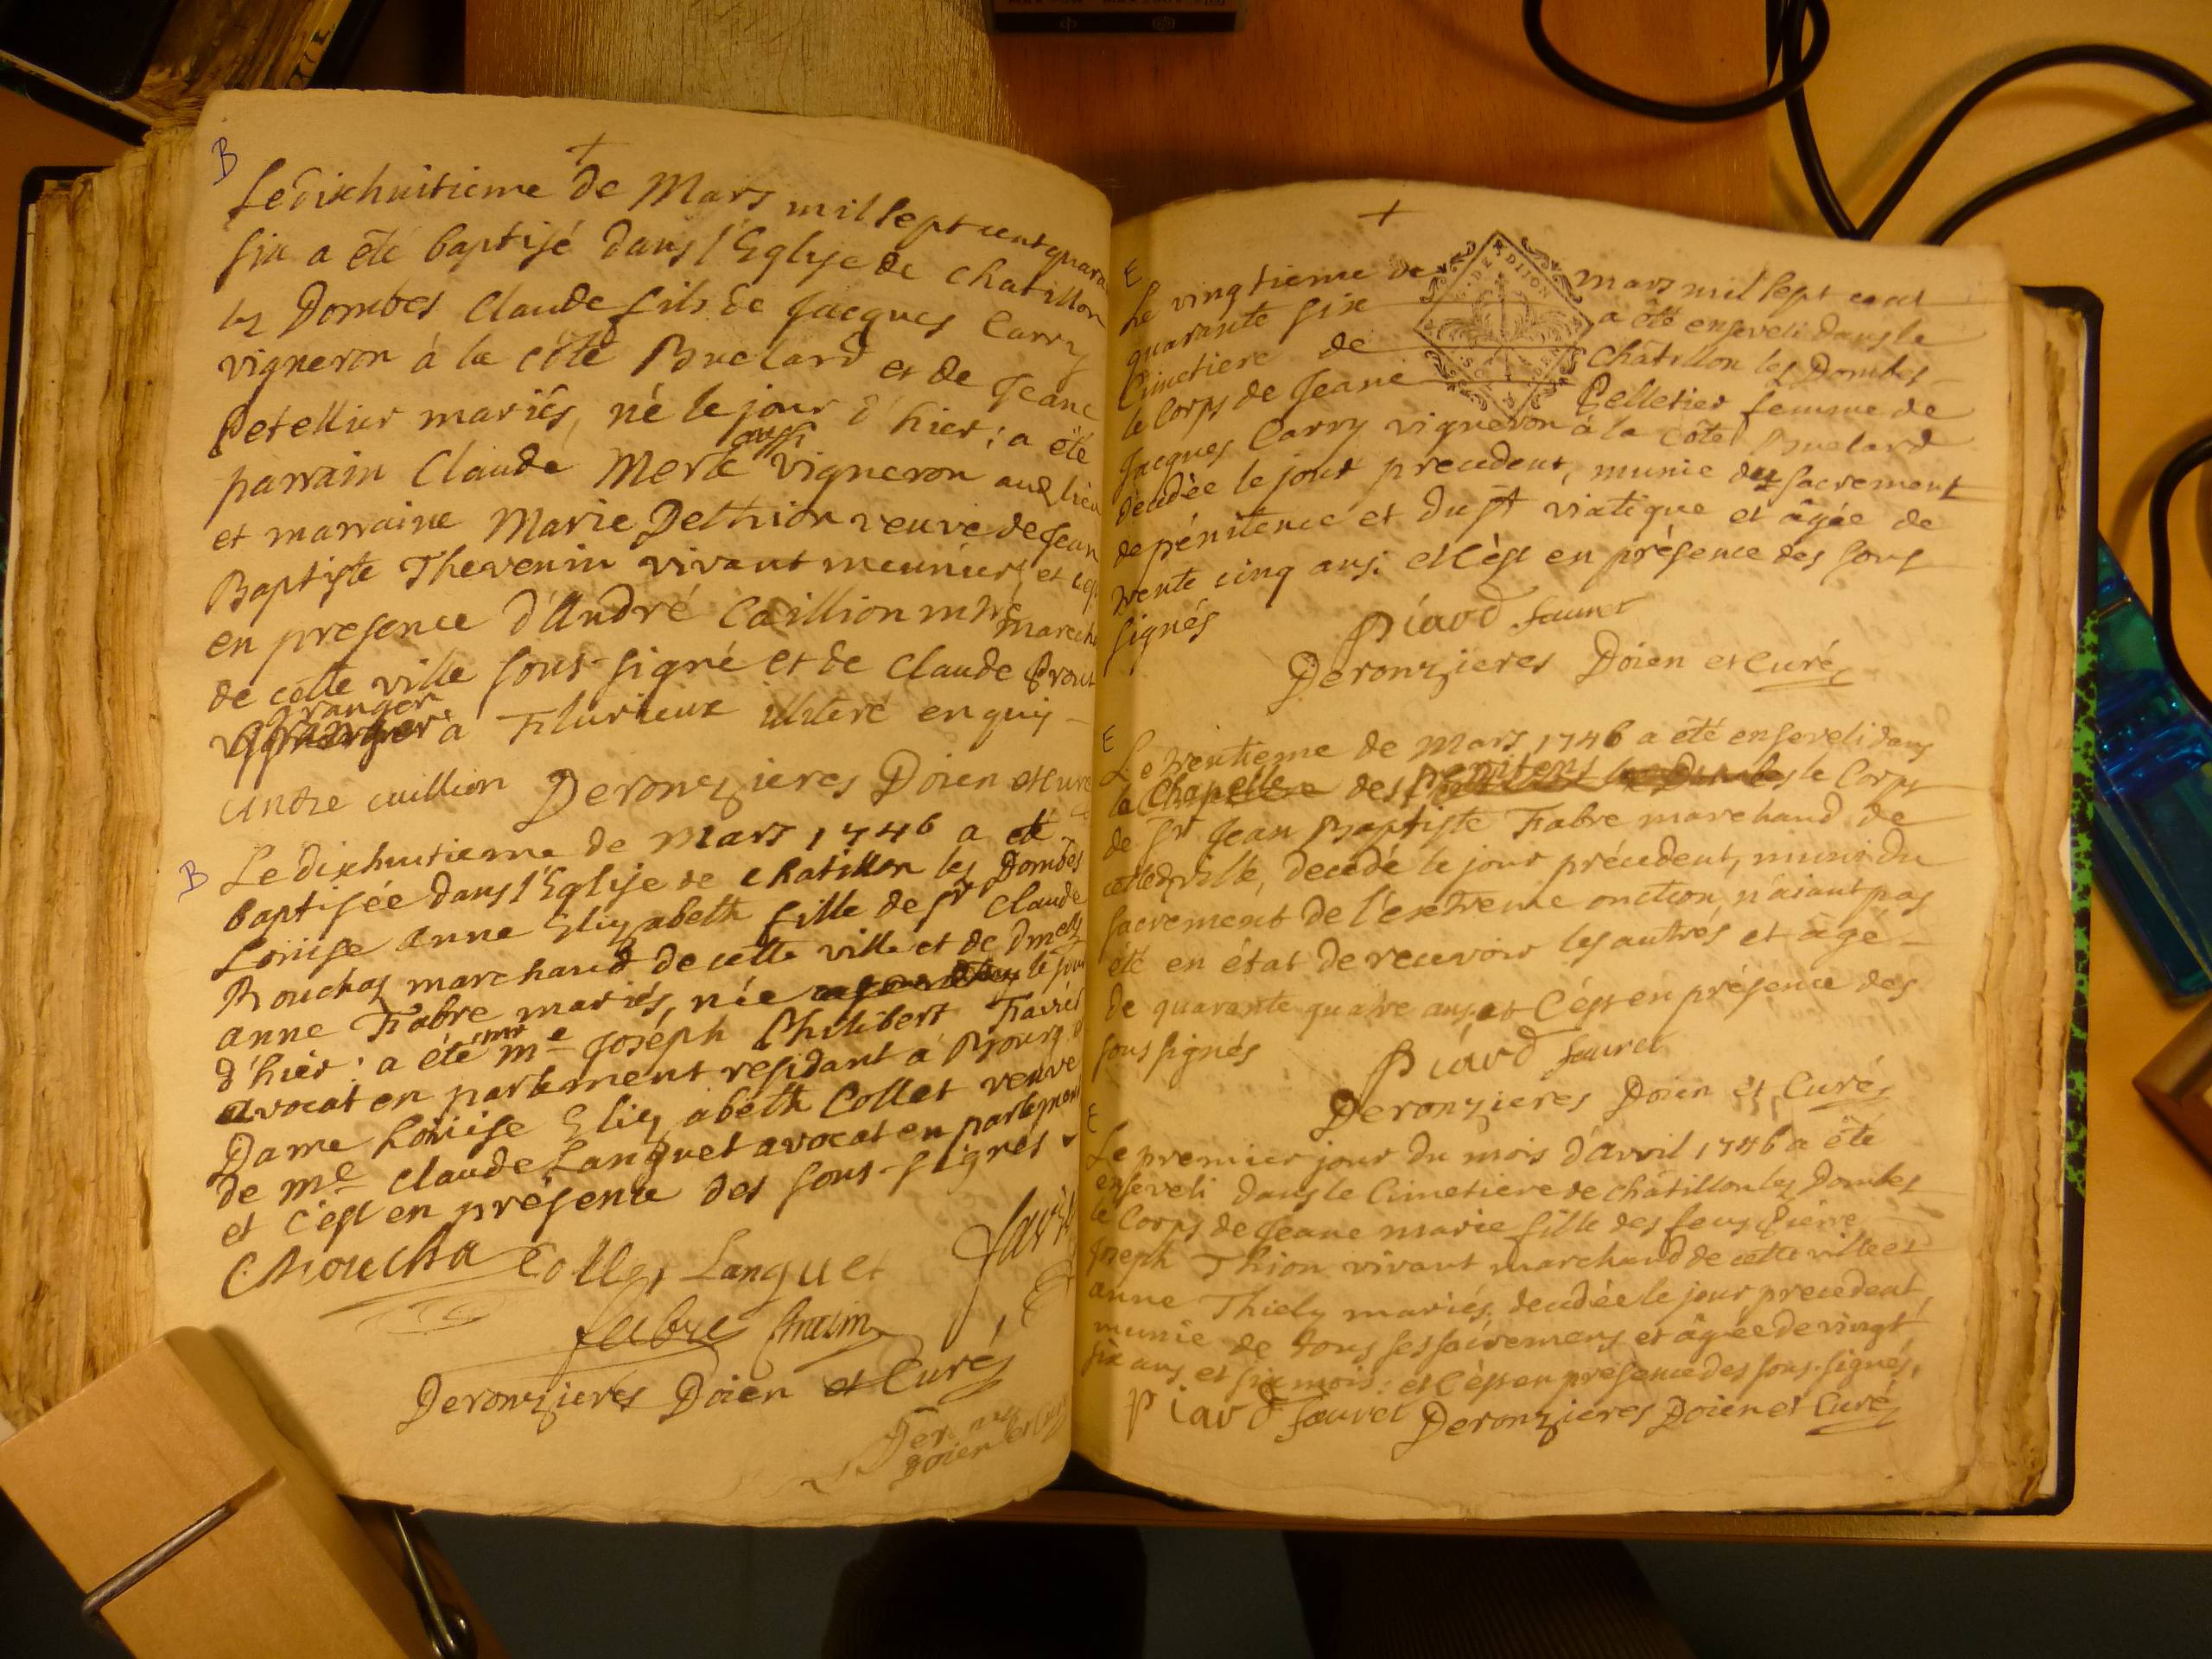 B
Le dixhuitieme de Mars mil sept cent quara
six a été baptisé dans l'Eglise de chatillon
lez Dombes Claude fils de Jacques Carry
vigneron à la côte Buelard et de Jeane
Petellier mariés, né le jour d'hier; a été
parrain Claude Merle aussi vigneron au lieu
et marraine Marie Delthion veuve de Jean
Baptiste Thevenin vivant meunier, et c'est
en presence d'André Caillion marcha
de cette ville sous-signé et de Claude
granger à Flurieux illiteré enquis
andre caillion Deronzieres Doien et curé
B
Le dixhuitieme de Mars 1746 a été
baptisée dans l'Eglise de chatillon lez Dombes
Louise anne Elizabeth fille de Sr Claude
Rouchaz marchand de cette ville et de Dmelle
anne Fabre mariés, née le jour
d'hier: a été mr me Joseph Philibert Favier
avocat en parlement residant à Bourg, et
Dame Louise Elizabeth Collet veuve
de me claude Languet avocat en parlement
et c'est en présence des sous-signés
Collet Languet
fabre
Deronzieres Doien et Curé
E
Le vingtieme de mars mil sept cent
quarante six a été enseveli dans le
Cimetiere de Châtillon lez Dombes
le Corps de Jeane Pelletier femme de
Jacques Carry vigneron à la côte Buelard
décedée le jour precedent, munie du sacrement
de pénitence et du st viatique et âgée de
trente cinq ans: et c'est en présence des sous
signés
Piavd fauret
Deronzieres Doien et Curé
E
Le trentieme de Mars 1746 a été enseveli dans
la Chapelle des penitens le Corps
de Sr Jean Baptiste Fabre marchand de
cette ville, decedé le jour précedent, muni du
sacrement de l'extreme onction n'aiant pas
été en état de recevoir les autres et âgé
de quarante quatre ans et c'est en présence des
sous signés
Piavd fauret
Deronzieres Doien et Curé
E
Le premier jour du mois d'avril 1746 a été
enseveli dans le Cimetiere de châtillon lez Dombes
le Corps de Jeane marie fille des feus Pierre
Joseph Thion vivant marchand de cette ville et
anne Thiely mariés, decedée le jour precedent,
munie de tous ses sacremens et âgée de vingt
six ans et six mois: et c'est en présence des sous-signés,
Piavd fauret Deronzieres Doien et Curé